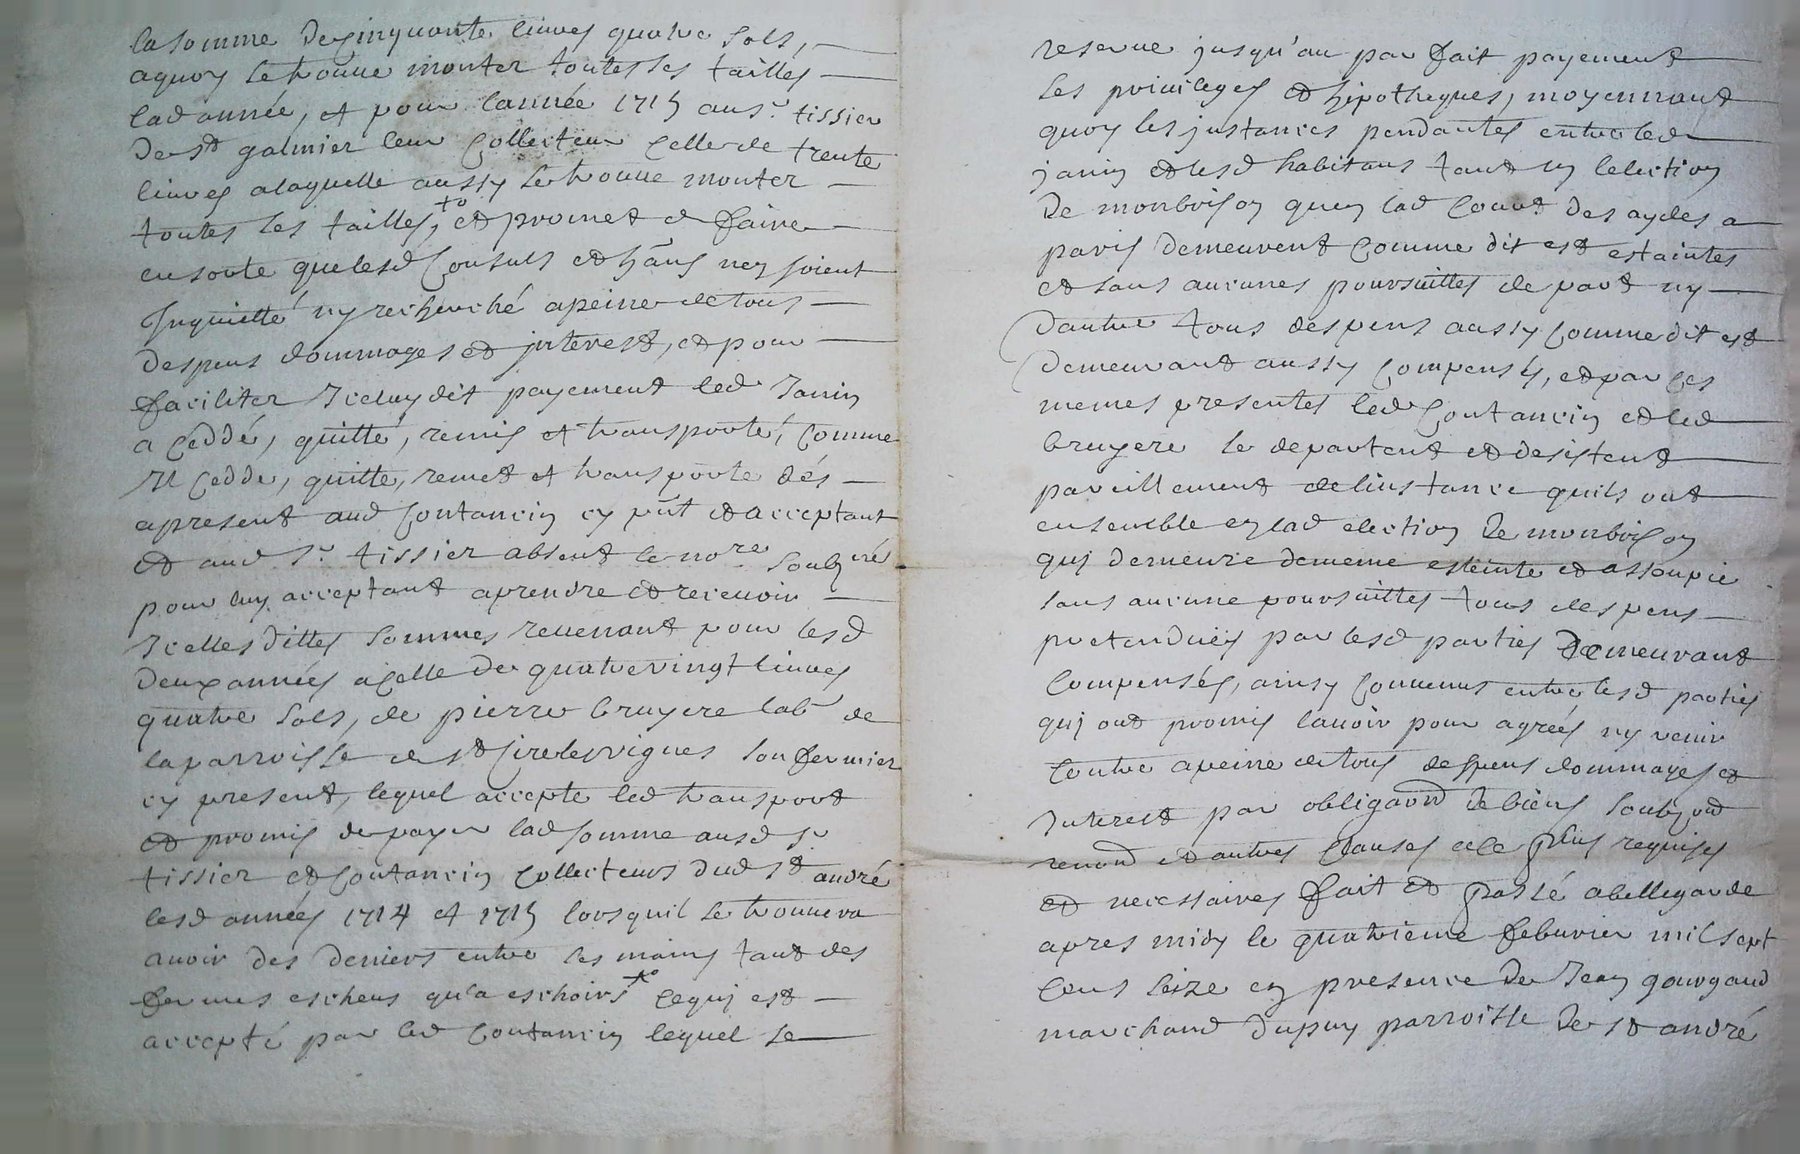 la somme de cinquante livres quatre sols,
aquoy se trouve monter toutes les tailles
lad année, et pour l'année 1715 au sr. tissier
de st galmier leur Collecteur Celle de trente
livres a laquelle aussy se trouve monter
toutes les tailles, et promet de faire
en sorte que lesd Consuls et hans ney soient
Inquietté ny recherché a peine de tous
despens dommages et jnterest, et pour
faciliter Jceluy dit payement led Janin
a ceddé, quitté, remis et transporté, Comme
Il Cedde, quitte, remet et transporte dés
apresent aud Contancin cy pnt et acceptant
et aud sr. tissier absent le nore soubzné
pour luy acceptant a prendre et recevoir
Jcelles dittes sommes revenant pour lesd
deux années a Celle de quatre vingt livres
quatre sols, de pierre bruyere labr de
la parroisse de st Cire les vignes son fermier
cy present, lequel accepte led transport
et promis de payer lad somme ausd sr.
tissier et Contancin Collecteurs dud st andré
lesd années 1714 et 1715 lorsquil se trouvera
avoir des deniers entre les mains tant des
fermes escheus qu'a eschoirs ce quj est
accepté par led Contancin lequel se
reserve jusqu'au parfait payement
les privileges et hipotheques, moyennant
quoy les jnstances pendantes entre led
janin et lesd habitans tant en lelection
de monbrison quen lad Court des aydes a
paris demeurent Comme dit est estaintes
et sans aucunes poursuittes de part ny
dautre tous despens aussy Comme dit est
demeurant aussy Compensés, et par Ces
memes presentes led Contancin et led
bruyere se departent et desistent
pareillement de linstance quils ont
ensemble en lad election de monbrison
quj demeure de meme esteinte et assoupie
sans aucune poursuittes tous despens
pretenduës par lesd parties demeurant
Compensés, ainsy Convenus entre lesd parties
quj ont promis lavoir pour agreés ny venir
Contre a peine de tous despens dommages et
Jnterest par obligaõn de biens soubz
renõn et autres Clauses a ce plus requises
et necessaires fait et passé a bellegarde
apres midy le quatrieme febvrier mil sept
Cens seize en presence de Jean gourgaud
marchand dupuy parroisse de st andré